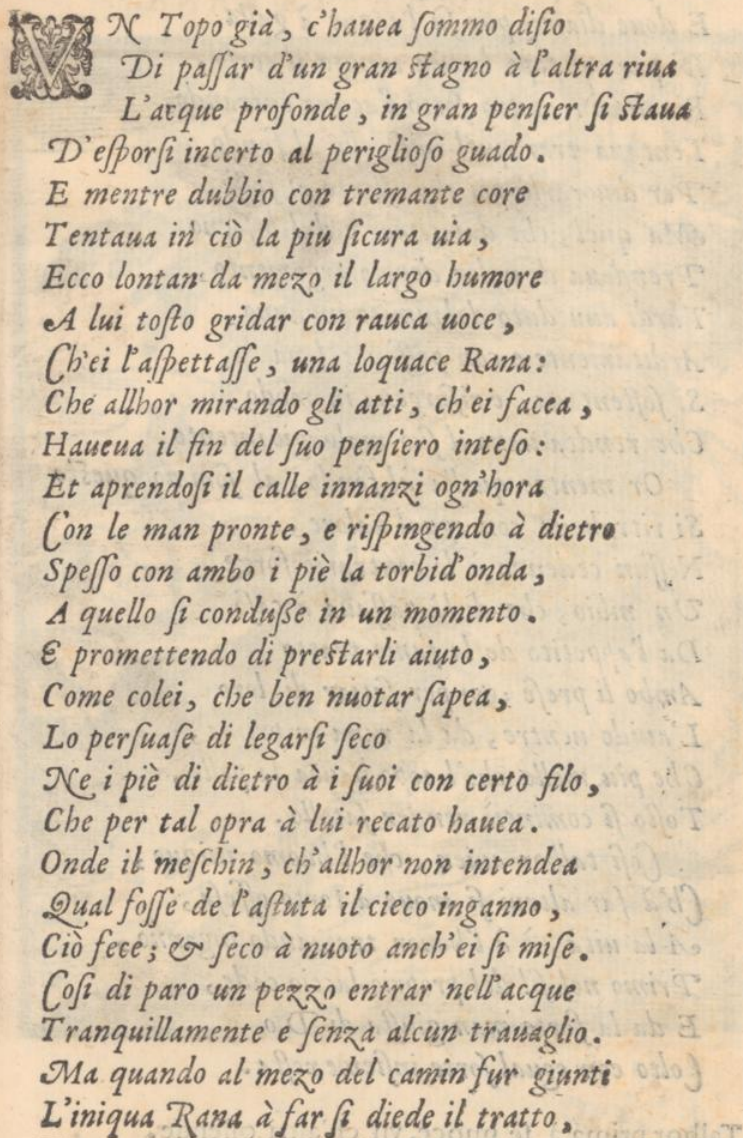 VN Topo già, c'hauea ſommo diſio
Di paſſar d'un gran ſtagno à l'altra riua
L'acque profonde, in gran penſier ſi ſtaua
D'eſporſi incerto al periglioſo guado.
E mentre dubbio con tremante core
Tentaua in ciò la piu ſicura uia,
Ecco lontan da mezo il largo humore
A lui toſto gridar con rauca uoce,
Ch'ei l'aſpettaſſe, una loquace Rana:
Che allhor mirando gli atti, ch'ei facea,
Haueua il fin del ſuo penſiero inteſo:
Et aprendoſi il calle innanzi ogn'hora
Con le man pronte, e riſpingendo à dietro
Speſſo con ambo i piè la torbid'onda,
A quello ſi conduße in un momento.
E promettendo di preſtarli aiuto,
Come colei, che ben nuotar ſapea,
Lo perſuaſe di legarſi ſeco
Ne i piè di dietro à i ſuoi con certo filo,
Che per tal opra à lui recato hauea.
Onde il meſchin, ch'allhor non intendea
Qual foſſe de l'aſtuta il cieco inganno,
Ciò fece; & ſeco à nuoto anch'ei ſi miſe.
Coſi di paro un pezzo entrar nell'acque
Tranquillamente e ſenza alcun trauaglio.
Ma quando al mezo del camin fur giunti
L'iniqua Rana à far ſi diede il tratto,